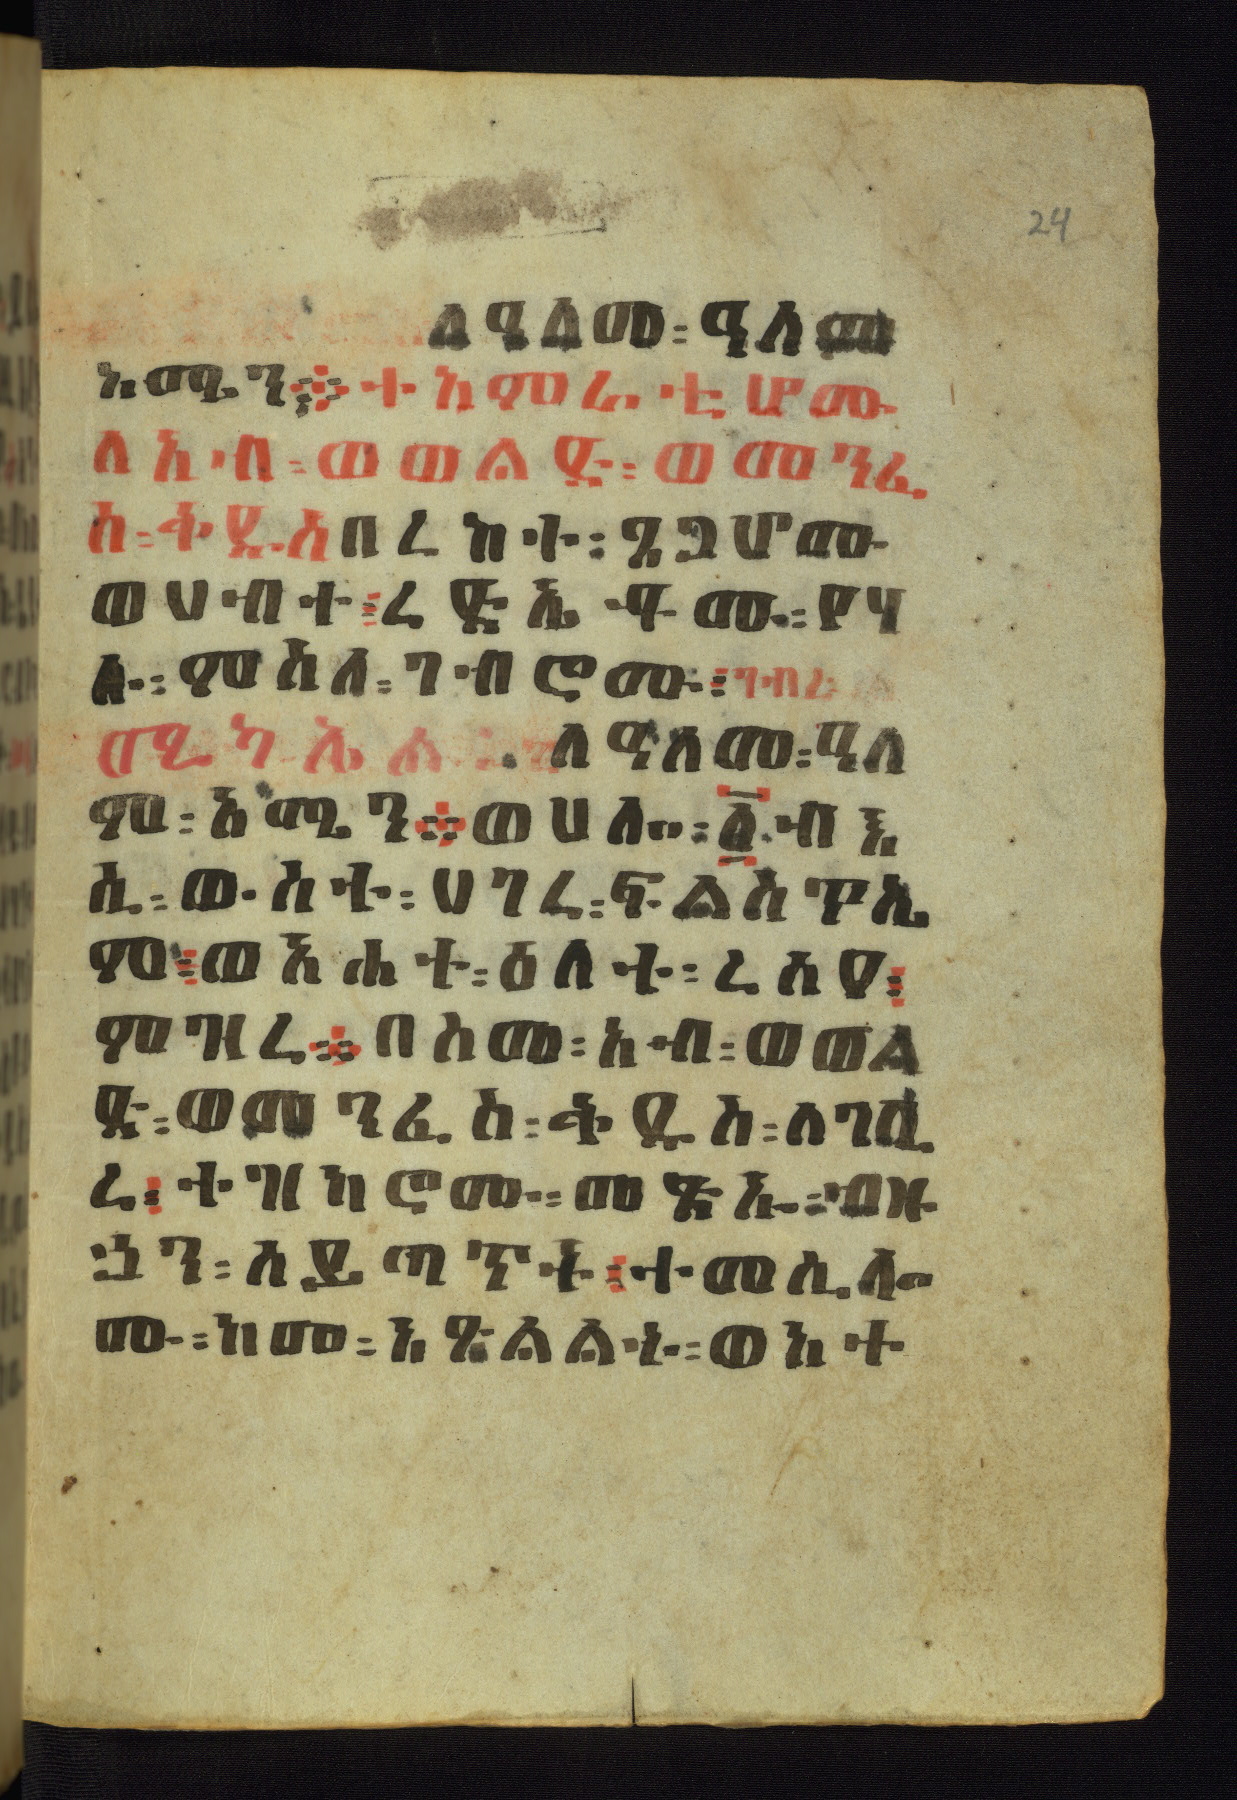 24
ለዓለመ፡ ዓለመ
አሜን፨ ተአምራቲሆሙ
ለአብ፡ ወወልድ፡ ወመንፈ
ስ፡ ቅዱስበረከት፡ ጸጋሆሙ
ወሀብተ፤ረድኤቶሙ፡ የሃ
ሉ፡ ምስለ፡ ገብሮሙ፤ ገብረ
ሚካኤል ለዓለመ፡ ዓለ
ም፡ አሜን፨ ወሀሎ፡ ፩ብእ
ሲ፡ ውስተ፡ ሀገረ፡ ፍልስጥኤ
ም፤ወእሐተ፡ ዕለተ፡ ረሰየ፤
ምዝረ፨ በስመ፡ አብ፡ ወወል
ድ፡ ወመንፈስ፡ ቅዱስ፡ ለገቢ
ረ፤ ተዝከሮሙ፡ መጽኡ፡ ብዙ
ኃን፡ አይጣጥት፤ተመሲሎ
ሙ፡ ከመ፡ አጽልልት፡ ወእተ